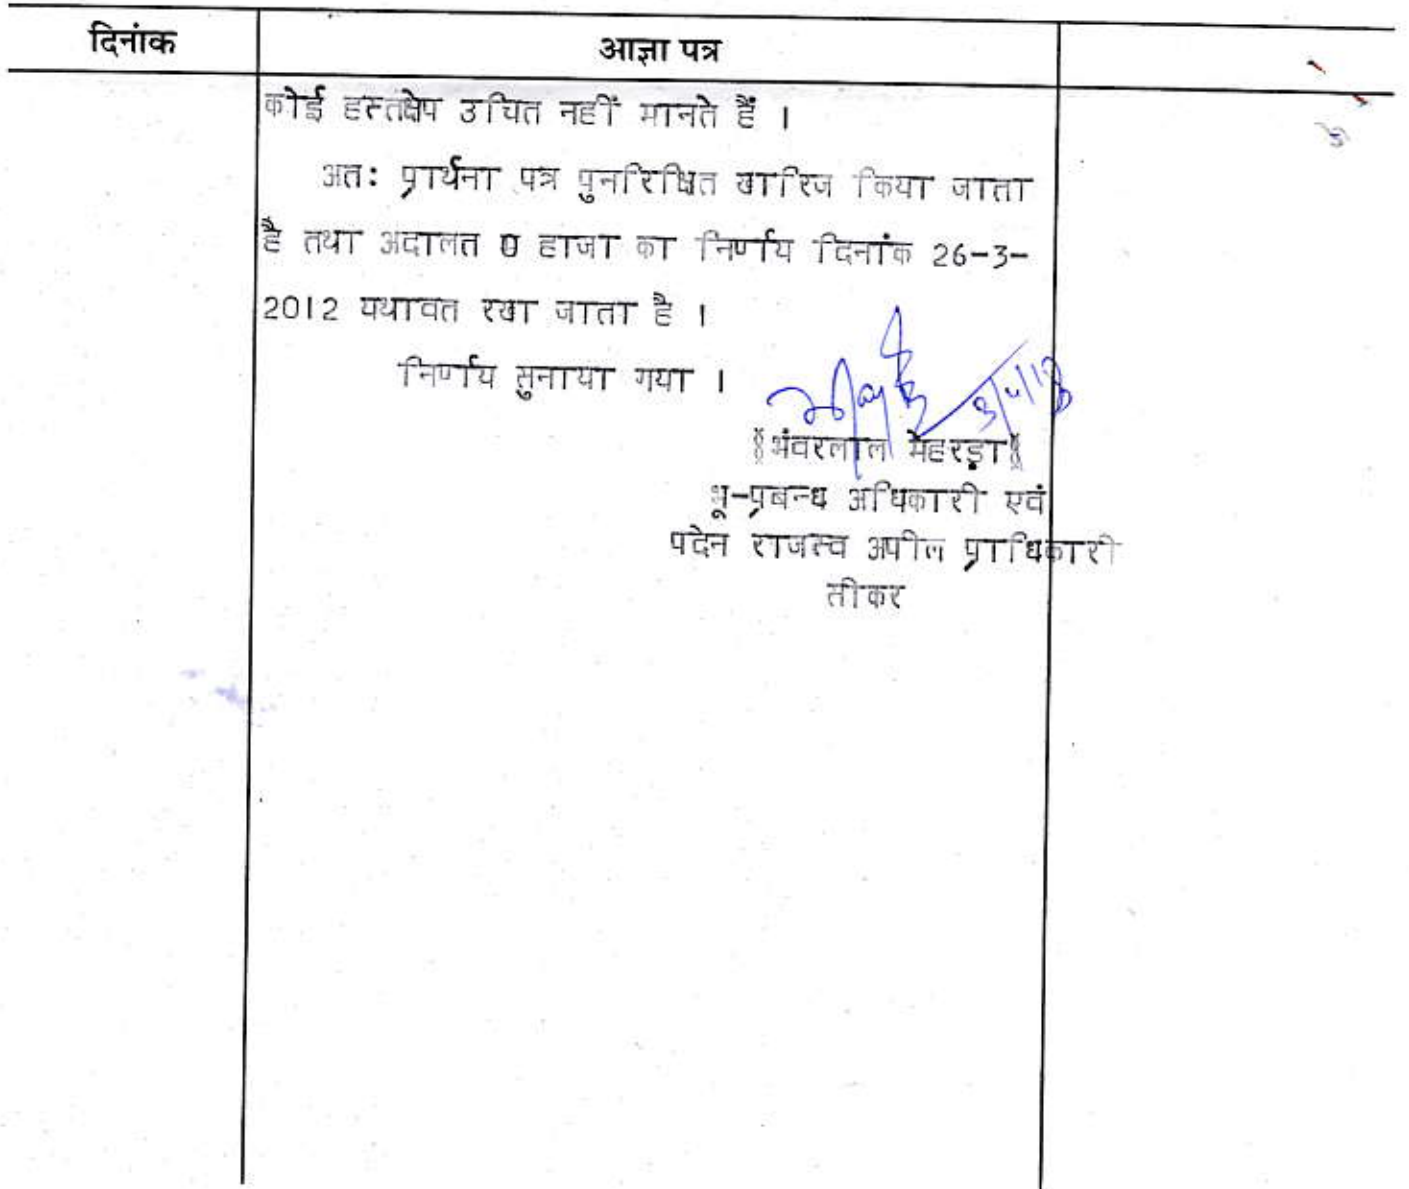 दिनांक आज्ञा पत्र
कोई हस्तक्षेप उचित नहीं मानते हैं ।
अतः प्रार्थना पत्र पुनरिक्षित खारिज किया जाता
है तथा अदालत हाजा का निर्णय दिनांक 26-3-
2012 यथावत रखा जाता है ।
निर्णय सुनाया गया ।
भंवरलाल मेहरड़ा
भू-प्रबन्ध अधिकारी एवं
पदेन राजस्व अपील प्राधिकारी
सीकर